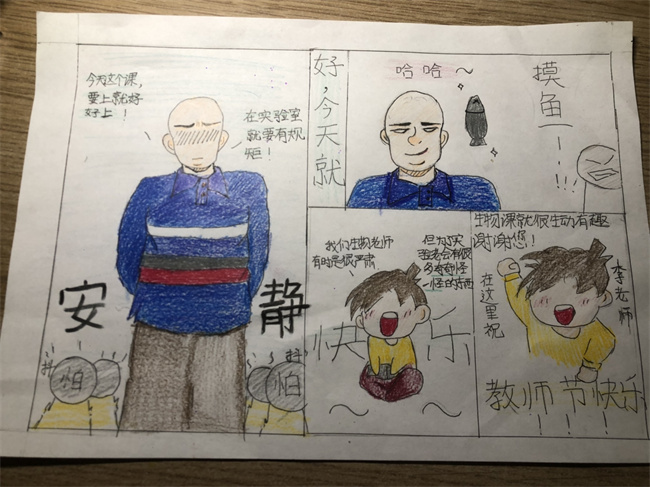 今天这个课,
要上就好
好上!
在实验室
就要有规
矩!
安静
抖
怕
抖
怕
好,今天就
哈哈~
摸鱼一·!!!
我们生物老师
有时是很严肃
但为了实
验老会有很
多奇奇怪
一怪的东西
快乐
~ ~
生物课就很生动有趣
谢谢您!
在这里祝
李老师
教师节快乐
! ! !